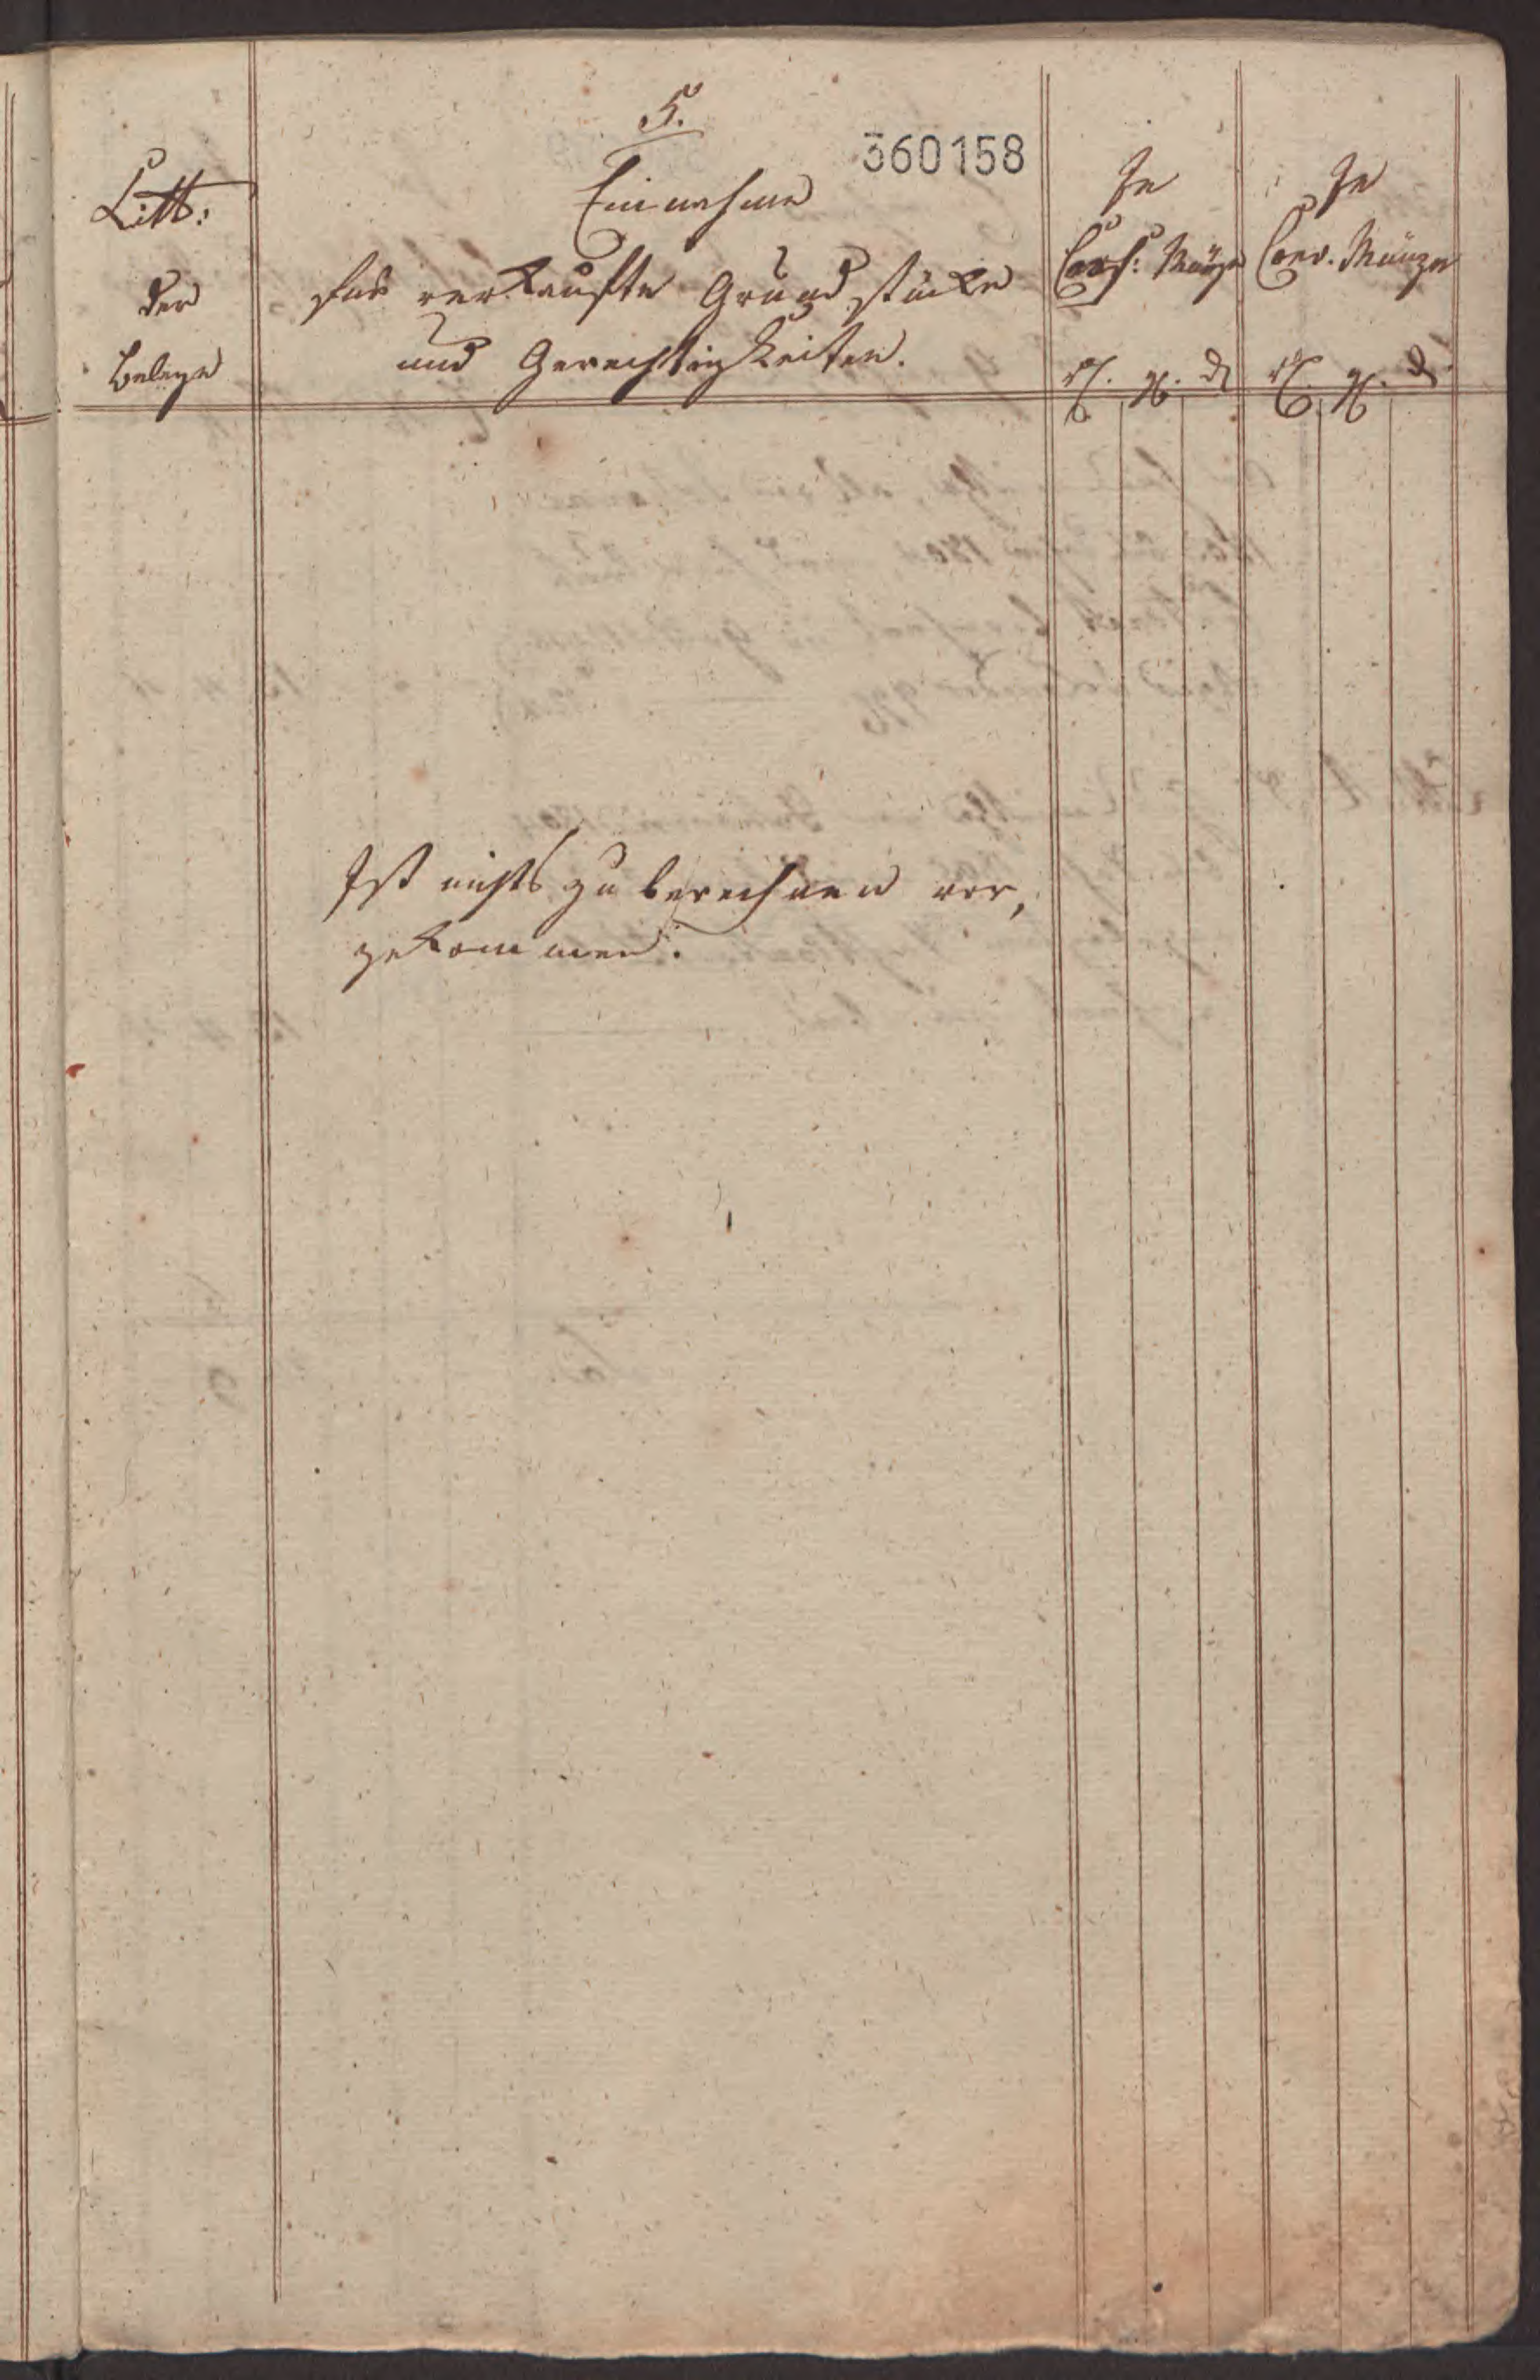 5.
360158
Litt:
der
Belege
Einnahme
für verkaufte Grundstücke
und Gerechtigkeiten.
In
Cass: Münze
rt. gg. d
In
Conv. Münze
rt. gg. d
Ist nichts zu berechnen vor,
gekommen.